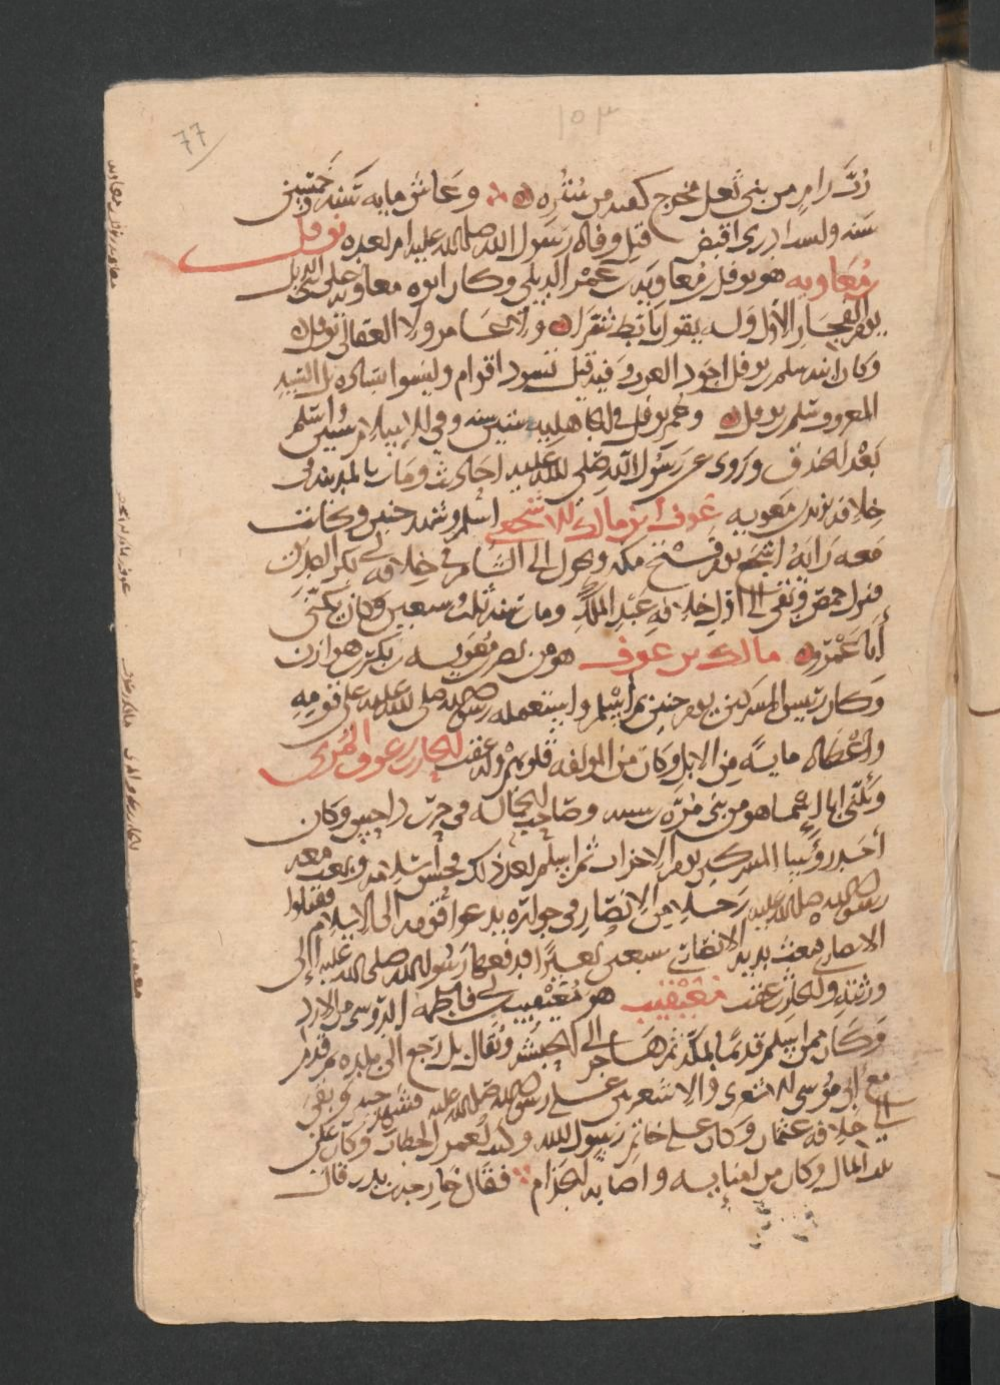 77
١٠٣
رُبَّ رامٍ من بنى ثعل مخرج كفيه من سُتُره وعاش مايه سنه وخمسين
سنه ولست ادرى اقبض قبل وفاه رسول الله صلى الله عليه ام بعده نوفل
بن مُعاويه هو نوفل بن مُعاويه بن عمرو الديلى وكان ابوه معاويه على الديل
يوم الفجار الأول وله يقول تابط شرا ولا عامر ولا العقالى نوفل
وكان ابنه سلم بن نوفل اجود العرب وفيه قيل نسود اقوام وليسوا بساده بل السيد
المعروف سلم بن نوفل وعمر نوفل فى الجاهليه ستين سنه وفى الاسلام ستين اسلم
بعد الخندق وروى عن رسول الله صلى الله عليه احاديث ومات بالمدينه فى
خلافه يزيد بن معويه عوف بن مالك الاشجعى اسلم وشهد حنين وكانت
معه رايه اشجع يوم فتح مكه وتحول الى الشام فى خلافه ابى بكر الصديق
فنزل حمص وبقى الى اول خلافه عبد الملك ومات سنه ثلث وسبعين وكان يكنى
أبا عمرو مالك بن عوف هو من نصر بن معويه بن بكر بن هوازن
وكان رئيس المشركين يوم حنين ثم اسلم واستعمله رسول الله صلى الله عليه على قومه
واعطاه مايه من الابل وكان من المولفه قلوبهم وله عقب الحارث بن عوف المُرى
ويكنى ابا اسما هو من بنى مُرّه وصاحب الحماله فى حرب داحس وكان
أحد روسا المشركين يوم الاحزاب ثم اسلم بعد ذلك فحسن اسلامه وبعث معه
رسول الله صلى الله عليه رجلا من الانصار فى جواره يدعوا قومه الى الاسلام فقتلوا
الانصارى فبعث بديه الانصارى سبعين بعيرا فدفعها رسول الله صلى الله عليه الى
ورثته وللحارث عقب مُعَيْقيب هو مُعَيْقيب بن ابى فاطمه الدوسى من الازد
وكان ممن اسلم قديمًا بمكه ثم هاجر الى الحبشه ويقال بل رجع الى بلده ثم قدم
مع ابى موسى الاشعرى والاشعريين على رسول الله صلى الله عليه فشهد خيبر وبقى
الى خلافه عثمان وكان على خاتم رسول الله وكذ لعمر بن الخطاب وكان على
بيت المال وكان من امنايه واصابه الجذام فقال خارجه بن زيد قال